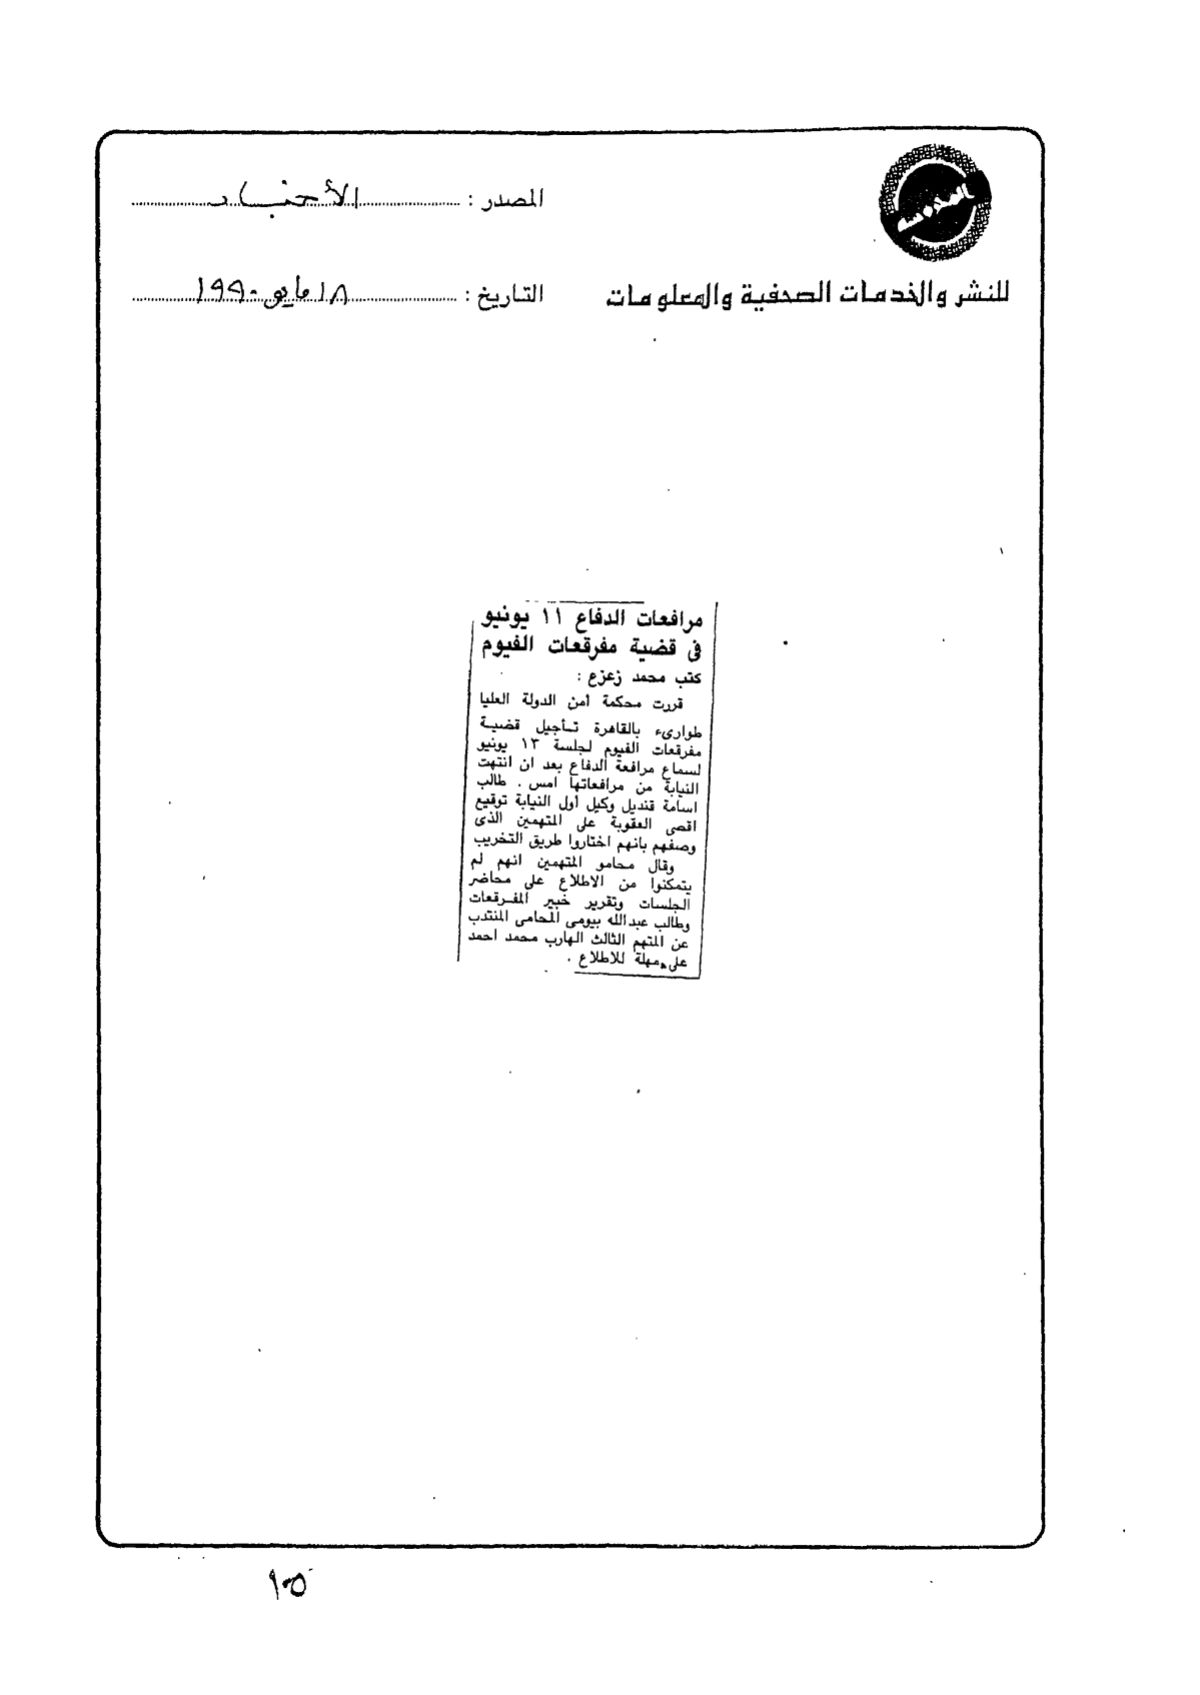 المصدر : الأخبار
للنشر والخدمات الصحفية والمعلومات
التاريخ : ١٨ مايو ١٩٩٠
مرافعات الدفاع ١١ يونيو
فى قضية مفرقعات الفيوم
كتب محمد زعزع :
قررت محكمة أمن الدولة العليا
طوارىء بالقاهرة تأجيل قضية
مفرقعات الفيوم لجلسة ١٣ يونيو
لسماع مرافعة الدفاع بعد ان انتهت
النيابة من مرافعاتها امس . طالب
اسامة قنديل وكيل أول النيابة توقيع
اقصى العقوبة على المتهمين الذى
وصفهم بانهم اختاروا طريق التخريب
وقال محامو المتهمين انهم لم
يتمكنوا من الاطلاع على محاضر
الجلسات وتقرير خبير المفرقعات
وطالب عبدالله بيومى المحامى المنتدب
عن المتهم الثالث الهارب محمد احمد
على مهلة للاطلاع .